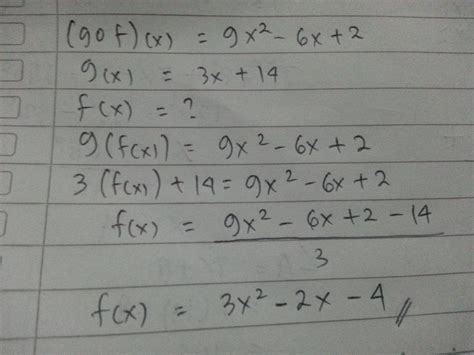 (gof)(x) = 9x² - 6x + 2
g(x) = 3x + 14
f(x) = ?
g(f(x)) = 9x² - 6x + 2
3(f(x)) + 14 = 9x² - 6x + 2
f(x) = 9x² - 6x + 2 - 14
3
f(x) = 3x² - 2x - 4 //